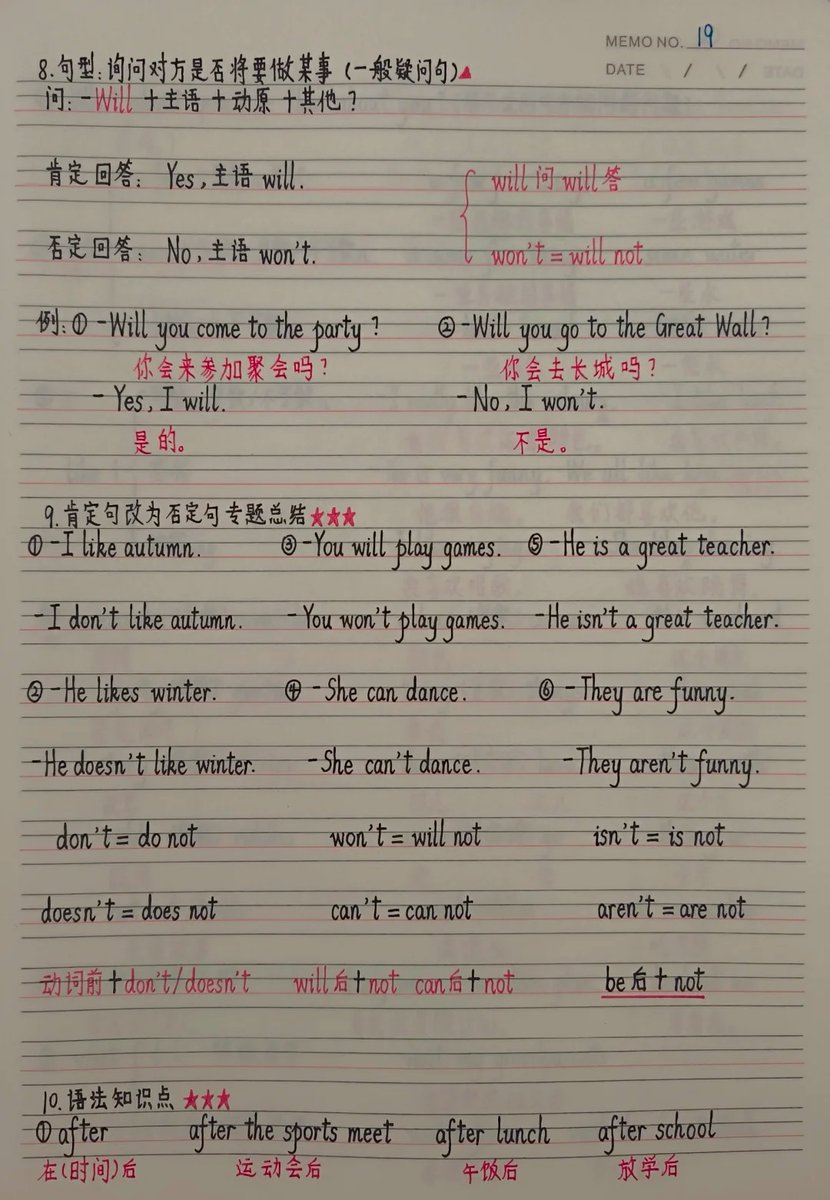 MEMO NO. 19
DATE / / /
8.句型:询问对方是否将要做某事(一般疑问句)▲
问:-Will+主语+动原+其他?
肯定回答: Yes,主语 will. will问will答
否定回答: No,主语 won't. won't=will not
例:①-Will you come to the party? ②-Will you go to the Great Wall?
你会来参加聚会吗? 你会去长城吗?
-Yes, I will. -No, I won't.
是的。 不是。
9.肯定句改为否定句专题总结★★★
①-I like autumn. ③-You will play games. ⑤-He is a great teacher.
-I don't like autumn. -You won't play games. -He isn't a great teacher.
②-He likes winter. ④-She can dance. ⑥-They are funny.
-He doesn't like winter. -She can't dance. -They aren't funny.
don't=do not won't=will not isn't=is not
doesn't=does not can't=can not aren't=are not
动词前+don't/doesn't will后+not can后+not be后+not
10.语法知识点★★★
①after after the sports meet after lunch after school
在(时间)后 运动会后 午饭后 放学后